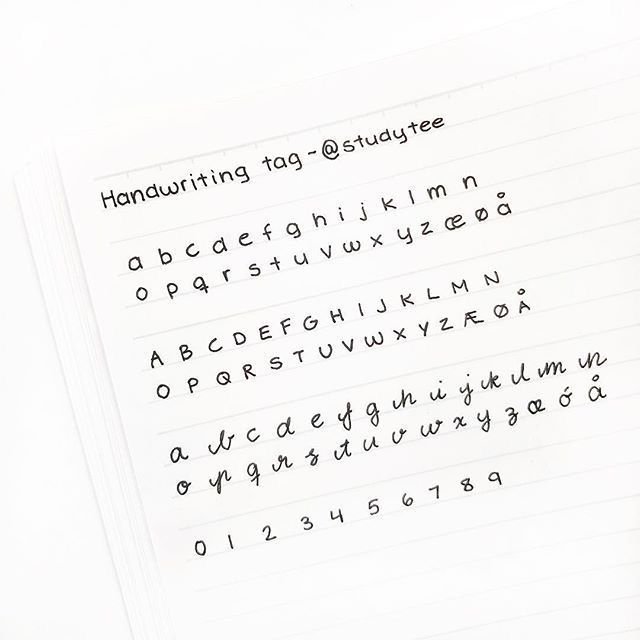 Handwriting tag - @studytee
a b c d e f g h i j k l m n
o p q r s t u v w x y z æ ø å
A B C D E F G H I J K L M N
O P Q R S T U V W X Y Z Æ Ø Å
a b c d e f g h i j k l m n
o p q r s t u v w x y z æ ó å
0 1 2 3 4 5 6 7 8 9